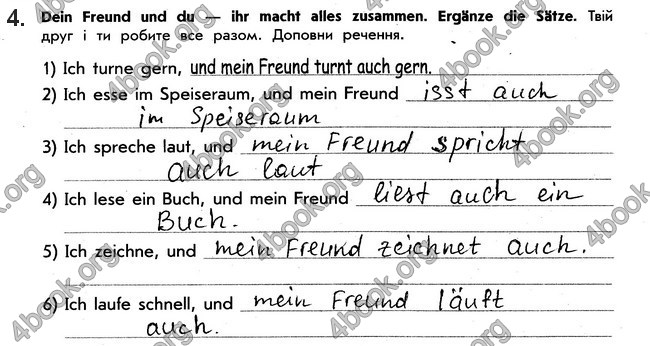 4. Dein Freund und du — ihr macht alles zusammen. Ergänze die Sätze. Твій
друг і ти робите все разом. Доповни речення.
1) Ich turne gern, und mein Freund turnt auch gern.
2) Ich esse im Speiseraum, und mein Freund isst auch
im Speiseraum
3) Ich spreche laut, und mein Freund spricht
auch laut
4) Ich lese ein Buch, und mein Freund liest auch ein
Buch.
5) Ich zeichne, und mein Freund zeichnet auch.
6) Ich laufe schnell, und mein Freund läuft
auch.
4book.org
4book.org
4book.org
4book.org
4book.org
4book.org
4book.org
4book.org